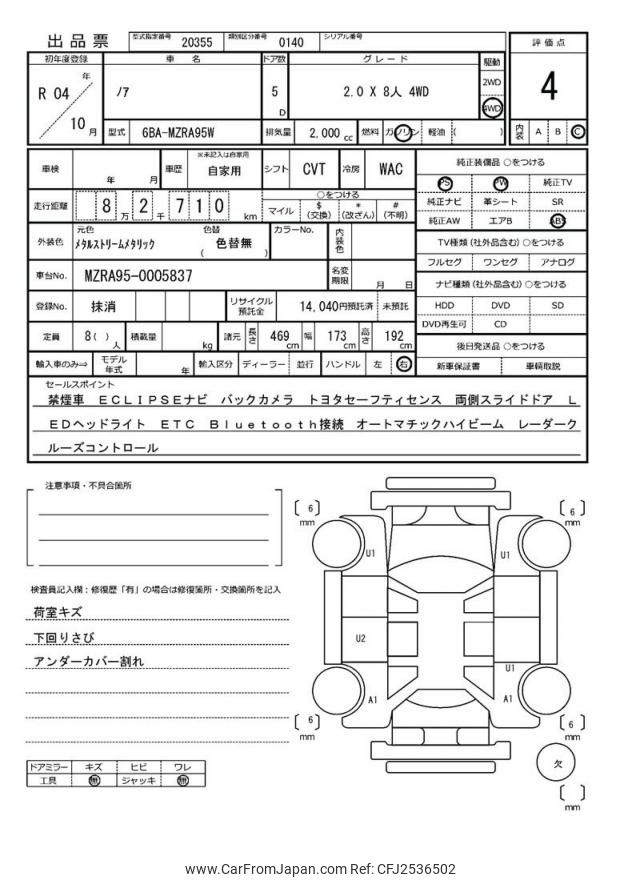 出品票 型式指定番号 20355 類別区分番号 0140 シリアル番号
初年度登録 車名 ドア数 グレード 駆動 評価点
R 04 年 10 月 ﾉｱ 5 D 2.0 X 8人 4WD 2WD 4WD 4
型式 6BA-MZRA95W 排気量 2,000 cc 燃料 ガソリン 軽油 ( ) 内装 A B C
車検 年 月 車歴 ※未記入は自家用 自家用 シフト CVT 冷房 WAC
走行距離 8 万 2 千 7 1 0 km ○をつける マイル $ (交換) * (改ざん) # (不明)
外装色 元色 ﾒﾀﾙｽﾄﾘｰﾑﾒﾀﾘｯｸ 色替 ( 色替無 ) カラーNo. 内装色
車台No. MZRA95-0005837 名変期限 月 日
登録No. 抹消 リサイクル預託金 14,040円預託済 未預託
定員 8( ) 人 積載量 kg 諸元 長さ 469 cm 幅 173 cm 高さ 192 cm
輸入車のみ⇒ モデル年式 年 輸入区分 ディーラー 並行 ハンドル 左 右
純正装備品 ○をつける
PS PW 純正TV
純正ナビ 革シート SR
純正AW エアB ABS
TV種類 (社外品含む) ○をつける
フルセグ ワンセグ アナログ
ナビ種類 (社外品含む) ○をつける
HDD DVD SD
DVD再生可 CD
後日発送品 ○をつける
新車保証書 車輌取説
セールスポイント
禁煙車 ECLIPSEナビ バックカメラ トヨタセーフティセンス 両側スライドドア L
EDヘッドライト ETC Bluetooth接続 オートマチックハイビーム レーダーク
ルーズコントロール
注意事項・不具合箇所
検査員記入欄：修復歴「有」の場合は修復箇所・交換箇所を記入
荷室キズ
下回りさび
アンダーカバー割れ
ドアミラー キズ ヒビ ワレ
工具 無 ジャッキ 無
[ 6 ] mm [ 6 ] mm
U1 U1
U2
U1
A1 A1
[ 6 ] mm [ 6 ] mm
欠
[ ] mm
www.CarFromJapan.com Ref: CFJ2536502